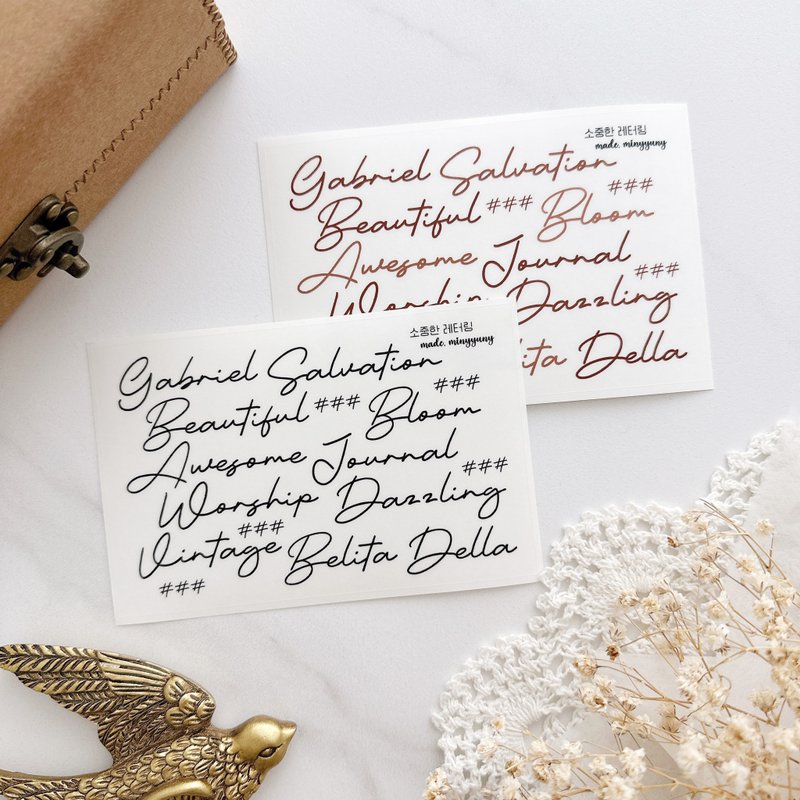 소중한 레터링
made. minyyuny
Gabriel Salvation
###
Beautiful ### Bloom
Awesome Journal
###
Worship Dazzling
lita Della
소중한 레터링
made. minyyuny
Gabriel Salvation
###
Beautiful ### Bloom
Awesome Journal
###
Worship Dazzling
###
Vintage Belita Della
###